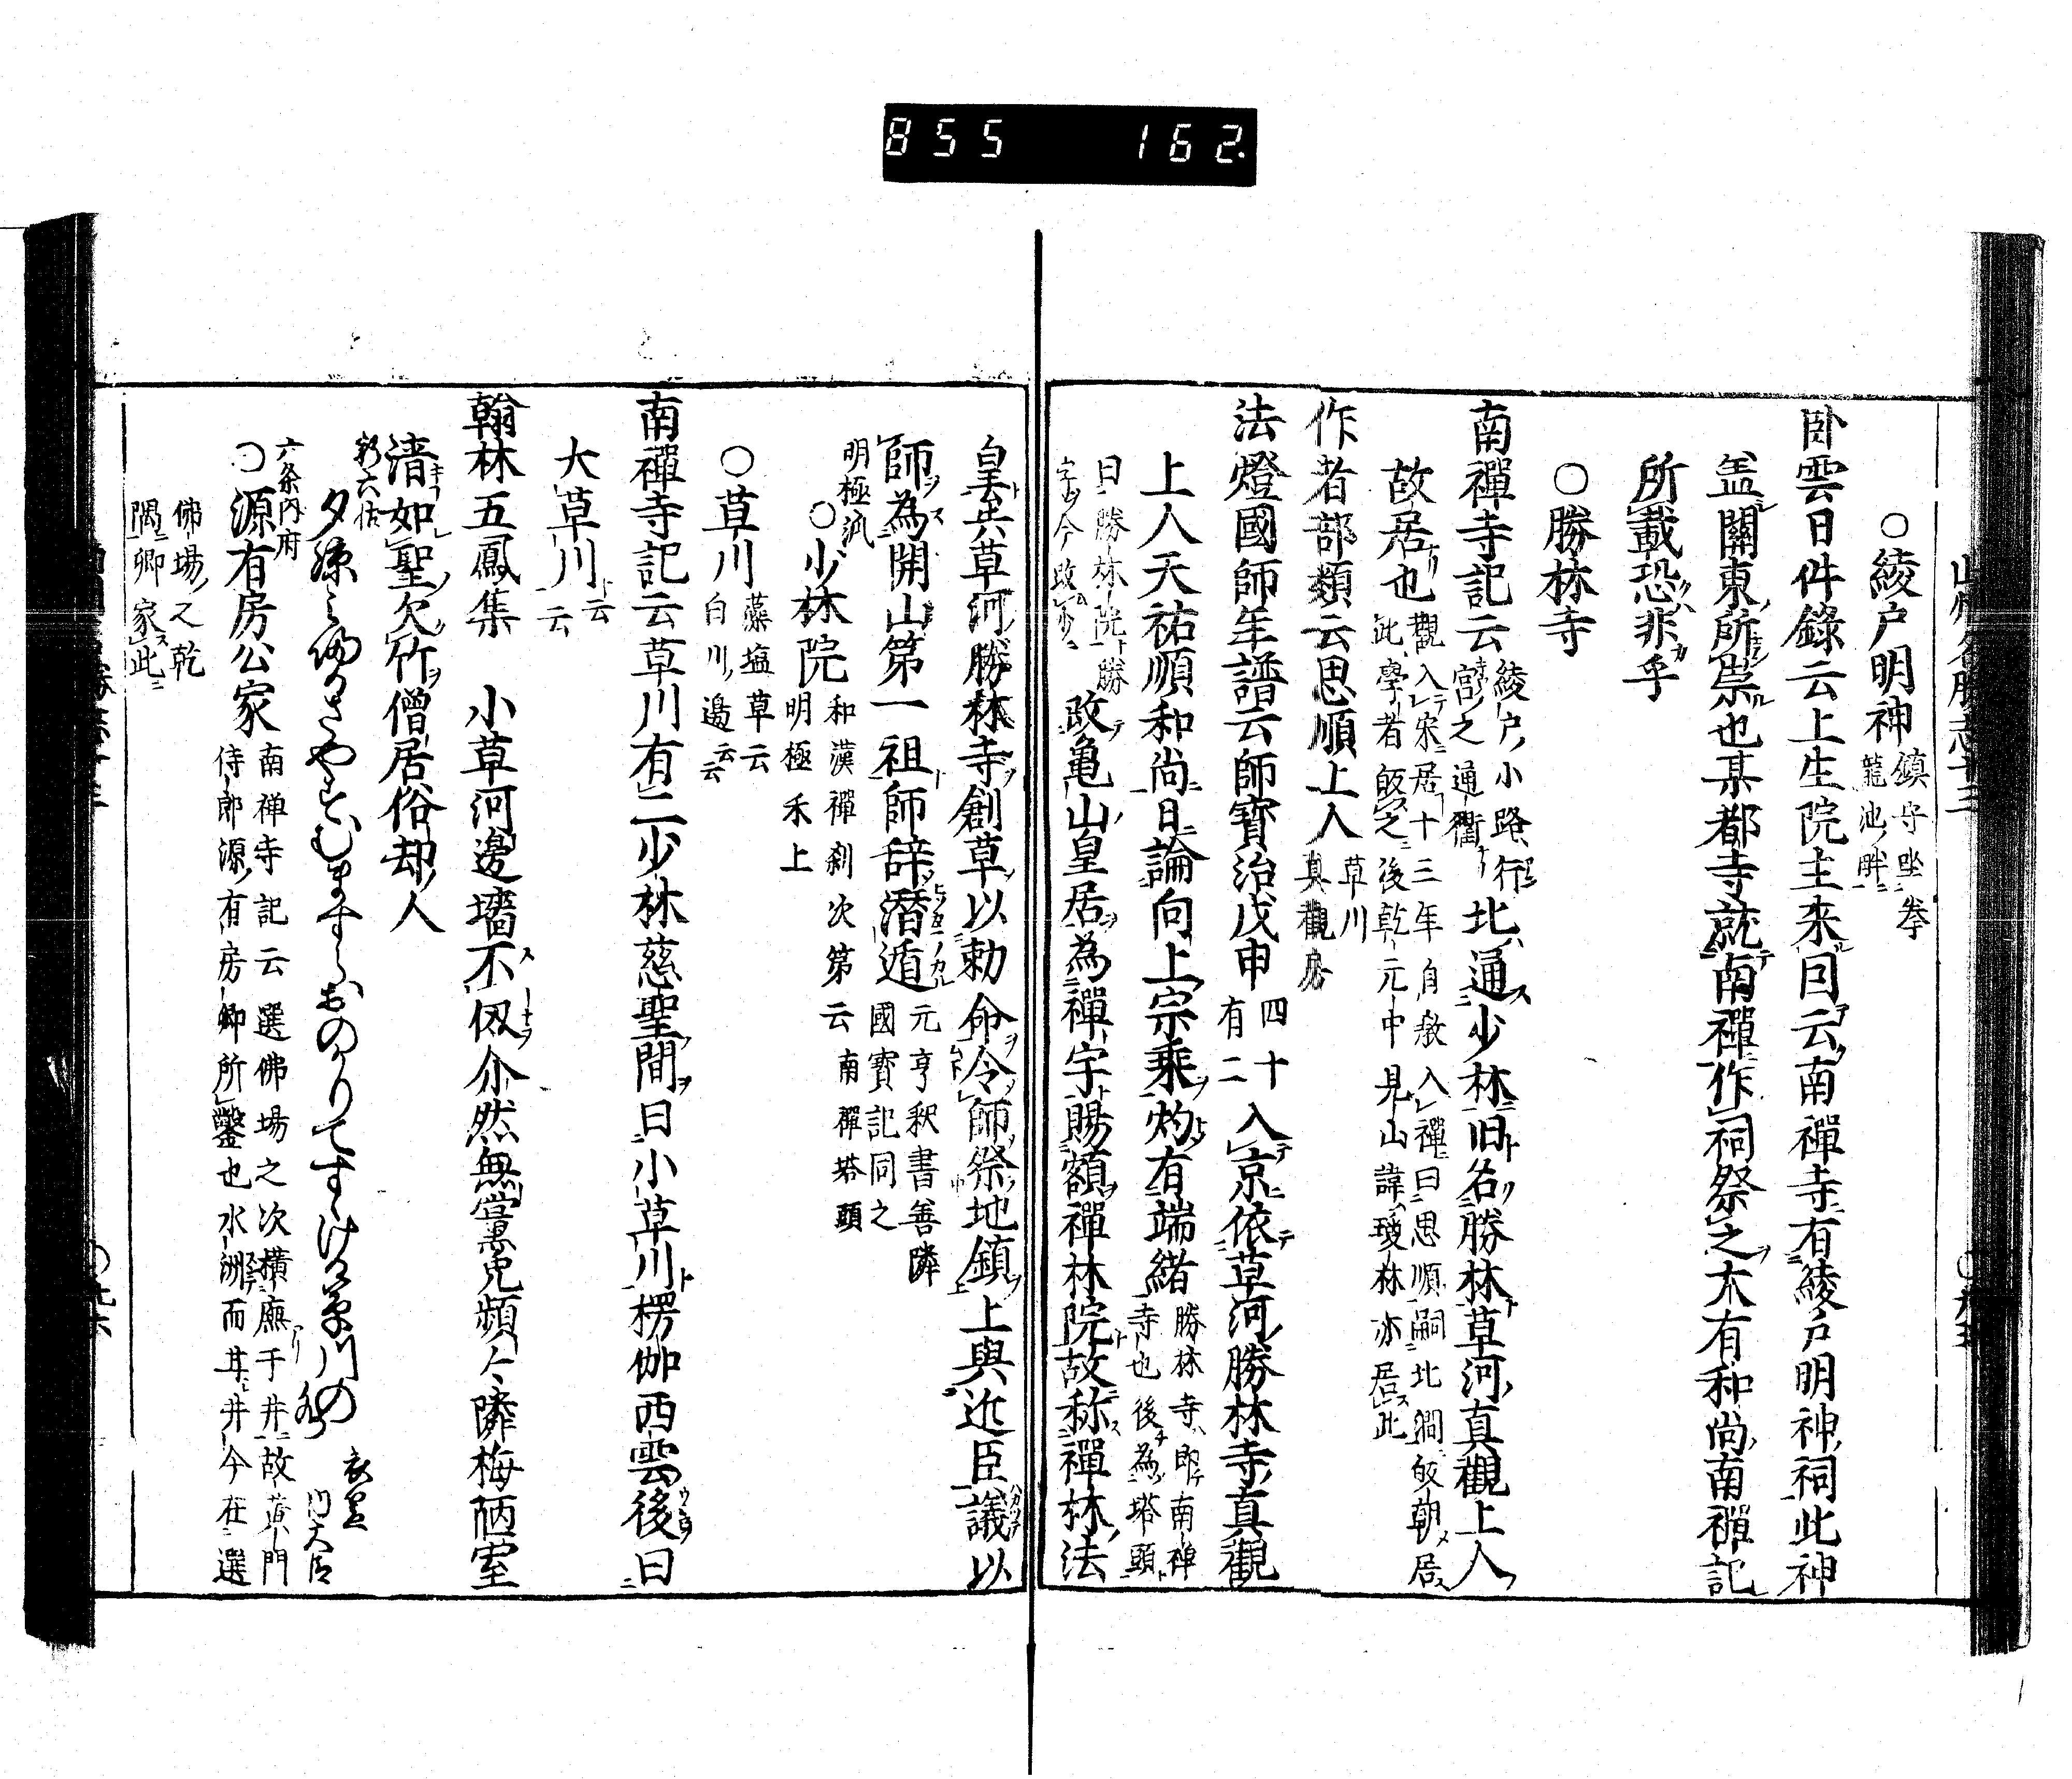 855 162
○綾戸明神 鎮守坐拳
龍池ノ畔ニ
卧雲日件錄云上生院主来曰云南禪寺有綾戸明神祠此神
盖關東所崇也某都寺就南禪作祠祭之太有和尚南禪記
所載恐非乎
○勝林寺
南禪寺記云 綾戸小路行
宮之通衢 北通少林旧名勝林草河真觀上人
故居也 觀入宋居十三年自敘入禪曰思順嗣北澗皈朝居
此學者皈之後乾元中見山諱璦林亦居此
作者部類云思順上人 草川
真觀房
法燈國師年譜云師寶治戊申 四十
有二 入京依草河勝林寺真觀
上人天祐順和尚日論向上宗乘灼有端緒 勝林寺即南禅
寺也後為塔頭
曰勝林院勝
字今改少 改亀山皇居為禪宇賜額禪林院故称禪林法
皇於草河勝林寺創草以勅命令師祭地鎮上與近臣議以
師為開山第一祖師辞潜遁 元亨釈書善隣
國寳記同之
明極派
○少林院 和漢禪刹次第云南禪塔頭
明極禾上
○草川 藻塩草云
白川邉云云
南禪寺記云草川有二少林慈聖間曰小草川楞伽西雲後曰
大草川云云
翰林五鳳集 小草河邊墻不仭尒然無黨免頻々隣梅陋室
清如聖欠竹僧居俗却人
新六帖
夕涼み
衣笠
内大臣
六条内府
○源有房公家 南禅寺記云選佛場之次横廡于井故黄門
侍郎源有房卿所鑿也水洲而其井今在選
佛場ノ乂乾
隅卿家此